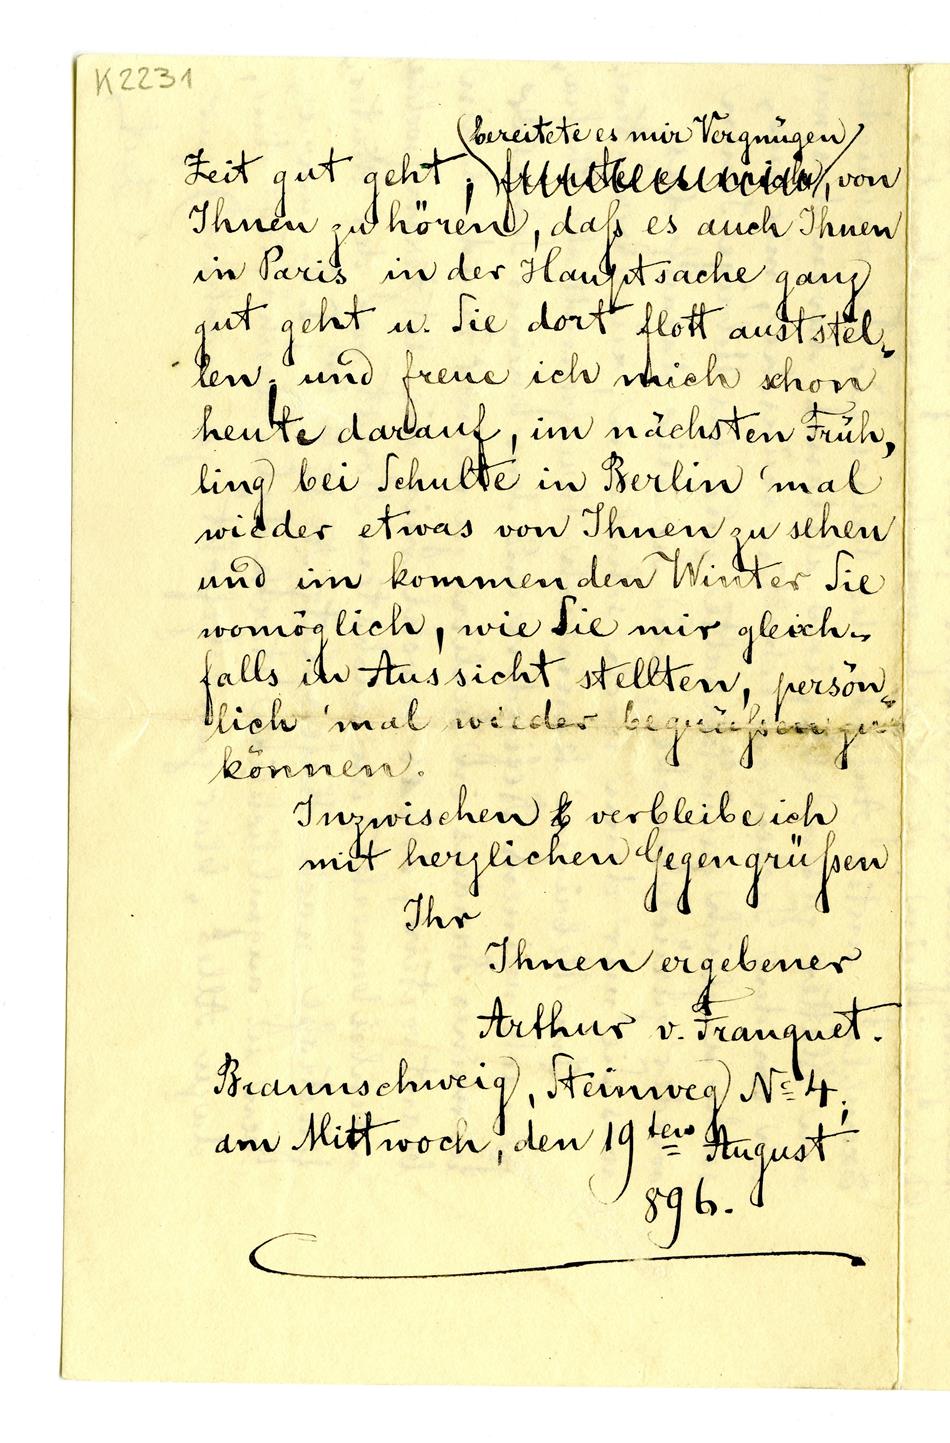 K2231
(bereitete es mir Vergnügen)
Zeit gut geht; , von
Ihnen zu hören, daß es auch Ihnen
in Paris in der Hauptsache ganz
gut geht u. Sie dort flott auststel-
len; und freue ich mich schon
heute darauf, im nächsten Früh-
ling bei Schulte in Berlin 'mal
wieder etwas von Ihnen zu sehen
und im kommenden Winter Sie
womöglich, wie Sie mir gleich-
falls in Aussicht stellten, persön-
lich 'mal wieder begrüßen zu
können.
Inzwischen verbleibe ich
mit herzlichen Gegengrüßen
Ihr
Ihnen ergebener
Arthur v. Franquet.
Braunschweig, Steinweg No 4;
am Mittwoch, den 19ten August
896.